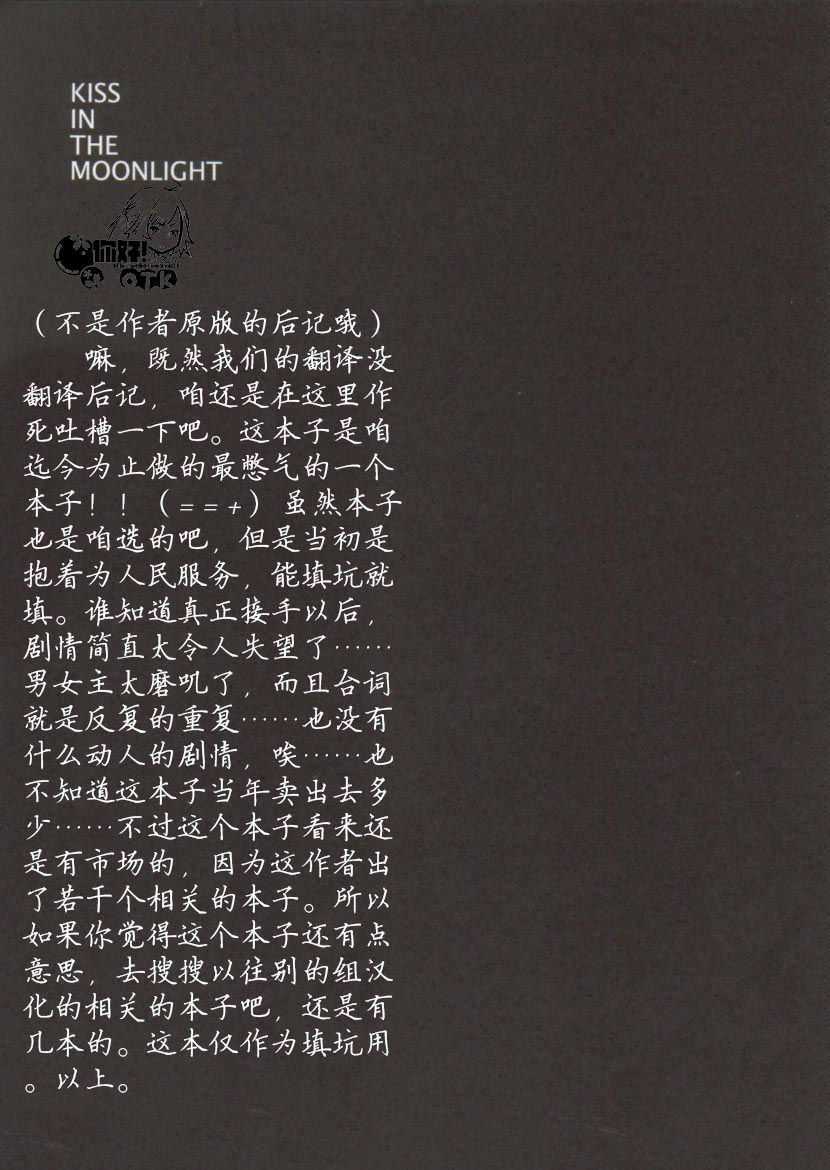 KISS
IN
THE
MOONLIGHT
你好!
OTK
（不是作者原版的后记哦）
嘛，既然我们的翻译没
翻译后记，咱还是在这里作
死吐槽一下吧。这本子是咱
迄今为止做的最憋气的一个
本子！！（==+）虽然本子
也是咱选的吧，但是当初是
抱着为人民服务，能填坑就
填。谁知道真正接手以后，
剧情简直太令人失望了……
男女主太磨叽了，而且台词
就是反复的重复……也没有
什么动人的剧情，唉……也
不知道这本子当年卖出去多
少……不过这个本子看来还
是有市场的，因为这作者出
了若干个相关的本子。所以
如果你觉得这个本子还有点
意思，去搜搜以往别的组汉
化的相关的本子吧，还是有
几本的。这本仅作为填坑用
。以上。